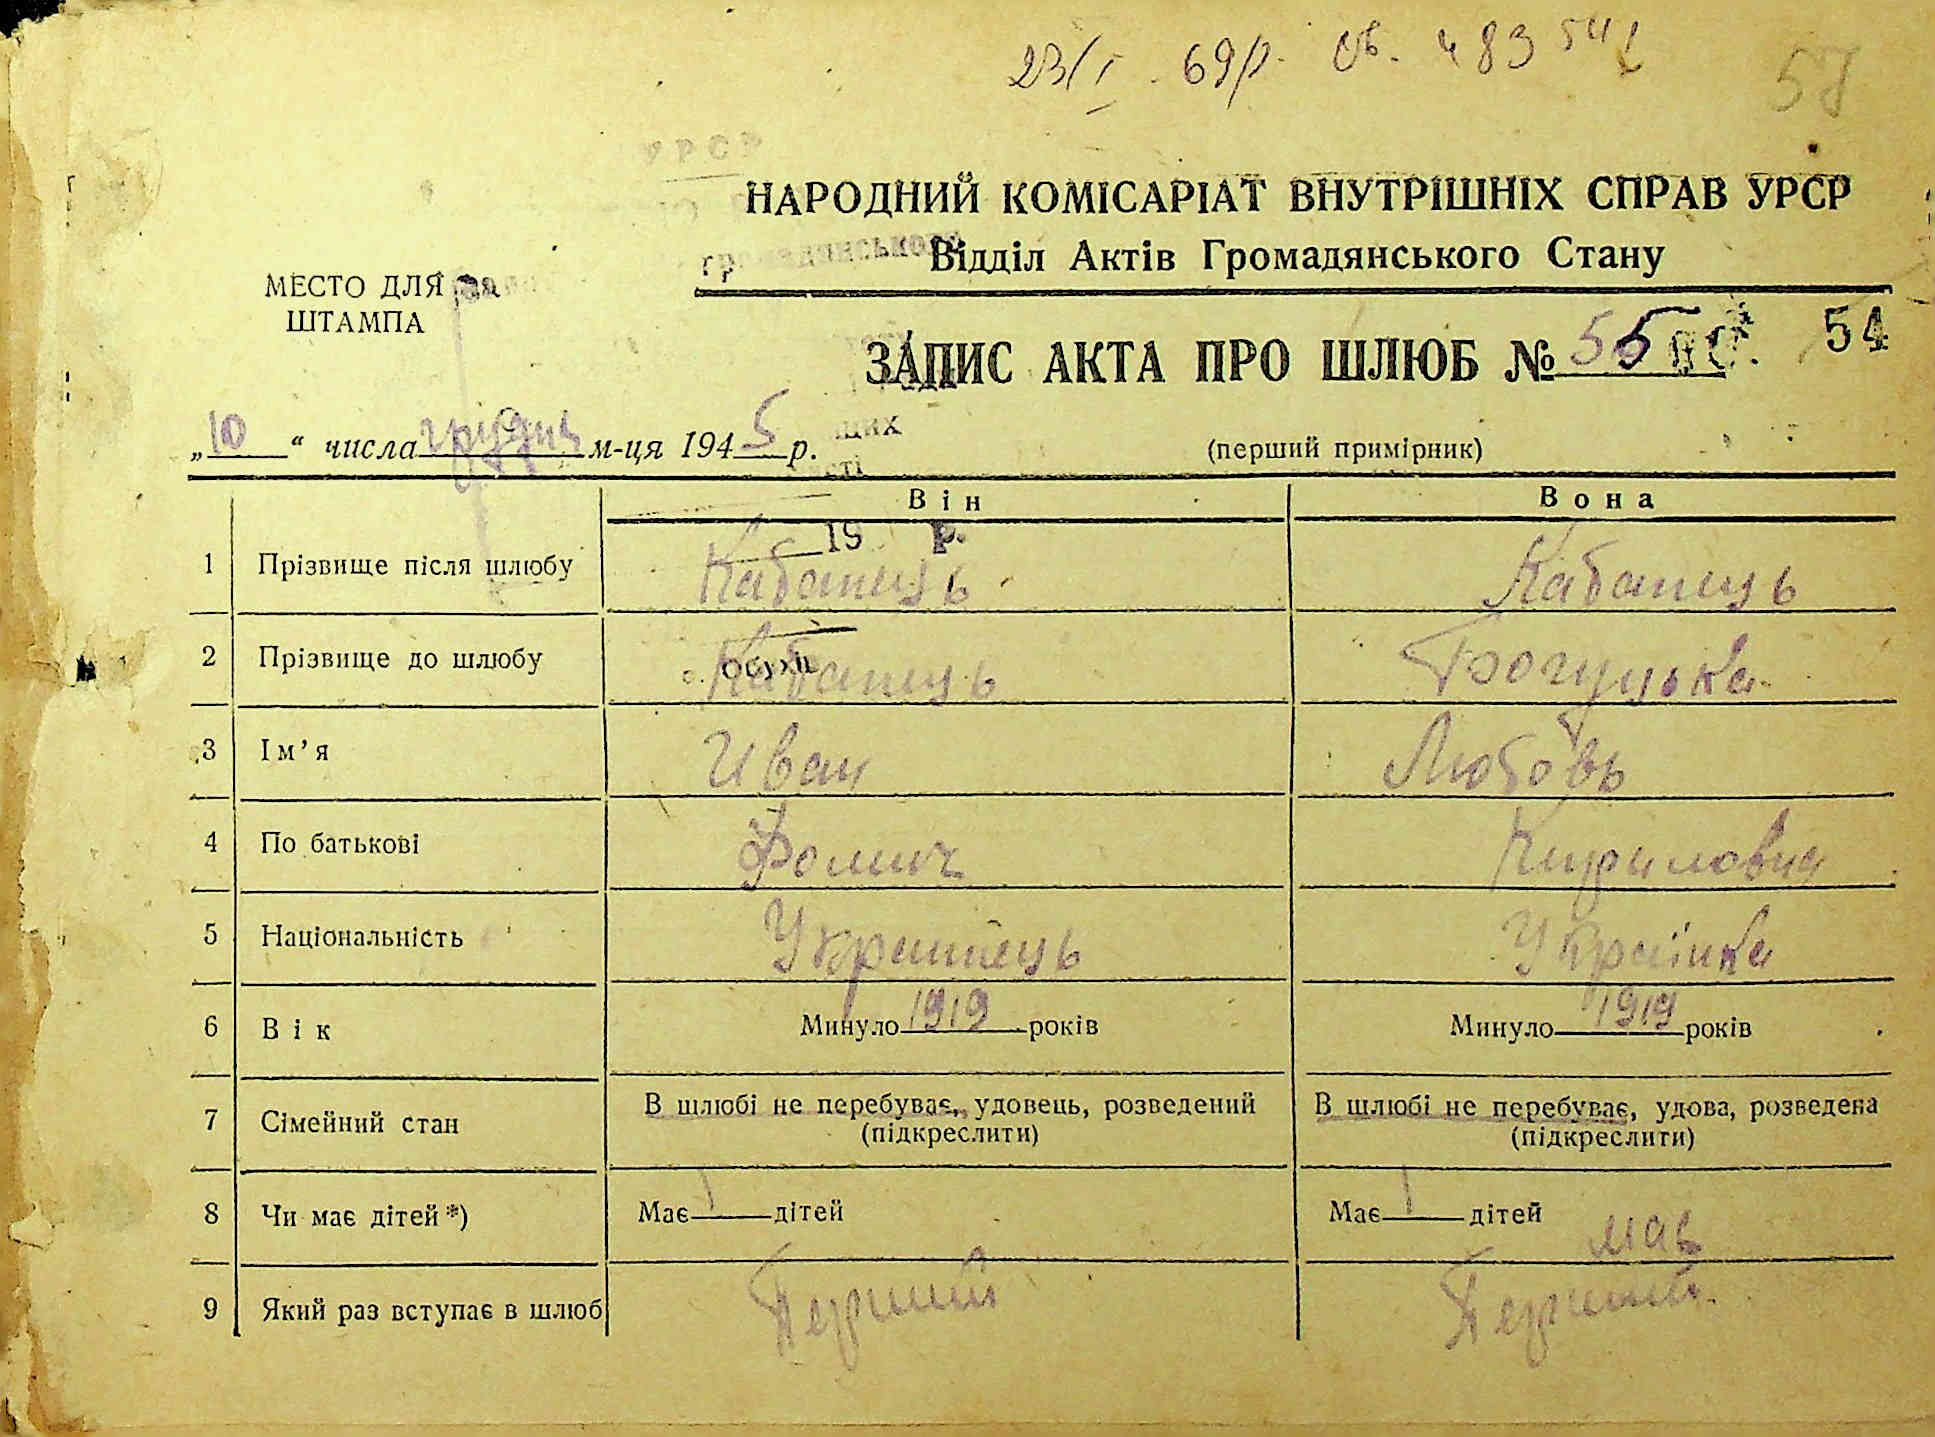 23/I. 69р. св. 483541
57
УРСР
НАРОДНИЙ КОМІСАРІАТ ВНУТРІШНІХ СПРАВ УРСР
громадянського
Відділ Актів Громадянського Стану
МЕСТО ДЛЯ
ШТАМПА
ЗАПИС АКТА ПРО ШЛЮБ № 55
54
„10“ числа грудня м-ця 1945 р.
(перший примірник)
Він
Вона
19 р.
1 Прізвище після шлюбу Кабанець Кабанець
2 Прізвище до шлюбу Кабанець Богуцька
3 Ім’я Иван Любовь
4 По батькові Фомич Кириловна
5 Національність Українець Українка
6 Вік Минуло 1919 років Минуло 1919 років
7 Сімейний стан В шлюбі не перебуває, удовець, розведений (підкреслити) В шлюбі не перебуває, удова, розведена (підкреслити)
8 Чи має дітей *) Має 1 дітей Має 1 дітей
9 Який раз вступає в шлюб Перший Перший